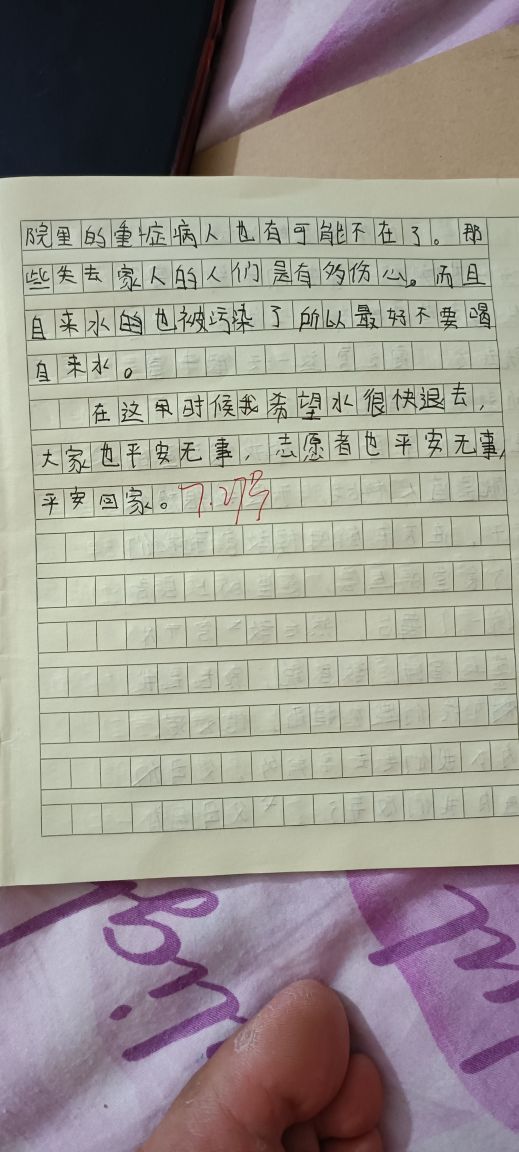 院里的重症病人也有可能不在了。那
些失去家人的人们是有多伤心。而且
自来水的也被污染了所以最好不要喝
自来水。
在这里时候我希望水很快退去，
大家也平安无事，志愿者也平安无事，
平安回家。7.27号